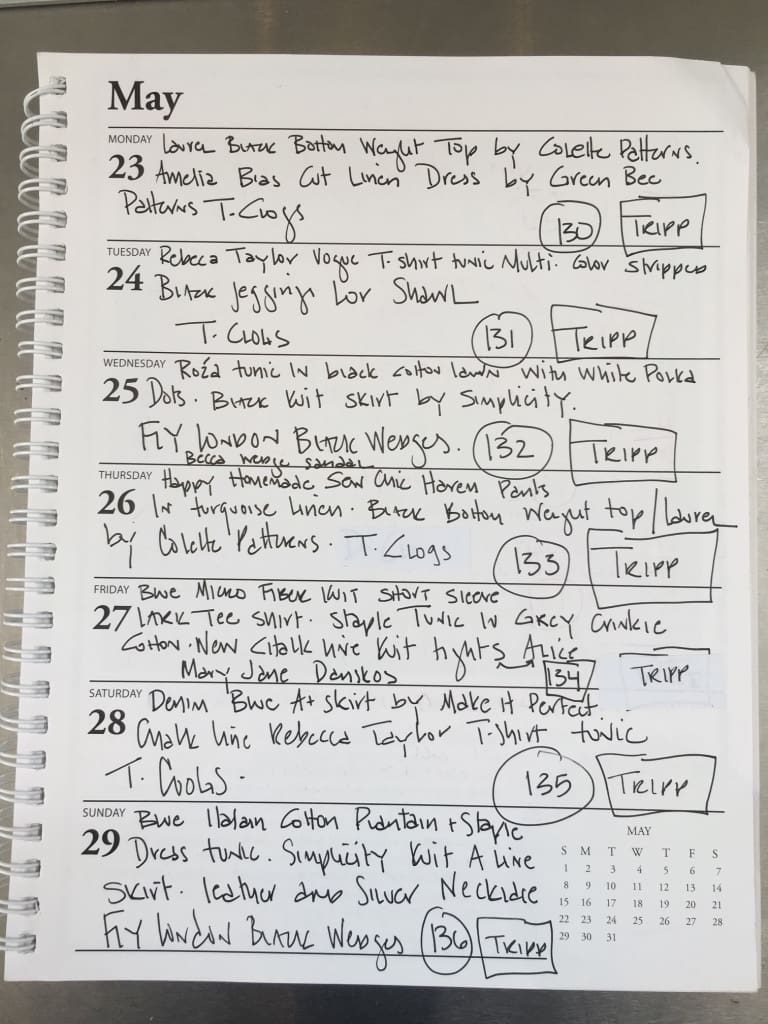 May
MONDAY
23
Laurel Black Bottom Weight Top by Colette Patterns.
Amelia Bias Cut Linen Dress by Green Bee
Patterns T. Clogs
130 TRIPP
TUESDAY
24
Rebecca Taylor Vogue T-shirt tunic Multi-Color Stripped
Black Jeggings Lov Shawl
T. Clogs
131 TRIPP
WEDNESDAY
25
Roza tunic in black cotton lawn with White Polka
Dots. Black Knit skirt by Simplicity.
Fly London Black Wedges. 132 TRIPP
Becca wedge sandal
THURSDAY
26
Happy Homemade Sew Chic Haren Pants
In turquoise linen. Black Bottom Weight top / Laurel
by Colette Patterns. T. Clogs
133 TRIPP
FRIDAY
27
Blue Micro Fiber Knit Short Sleeve
LARK Tee shirt. Staple Tunic in Grey Crinkle
Cotton. New Chalk line Knit tights Alice
Mary Jane Danskos 134 TRIPP
SATURDAY
28
Denim Blue A+ skirt by Make it Perfect
Chalk line Rebecca Taylor T-shirt tunic
T. Clogs. 135 TRIPP
SUNDAY
29
Blue Italian Cotton Plantain + Staple
Dress tunic. Simplicity Knit A line
Skirt. leather and Silver Necklace
Fly London Black Wedges 136 TRIPP
MAY
S M T W T F S
1 2 3 4 5 6 7
8 9 10 11 12 13 14
15 16 17 18 19 20 21
22 23 24 25 26 27 28
29 30 31